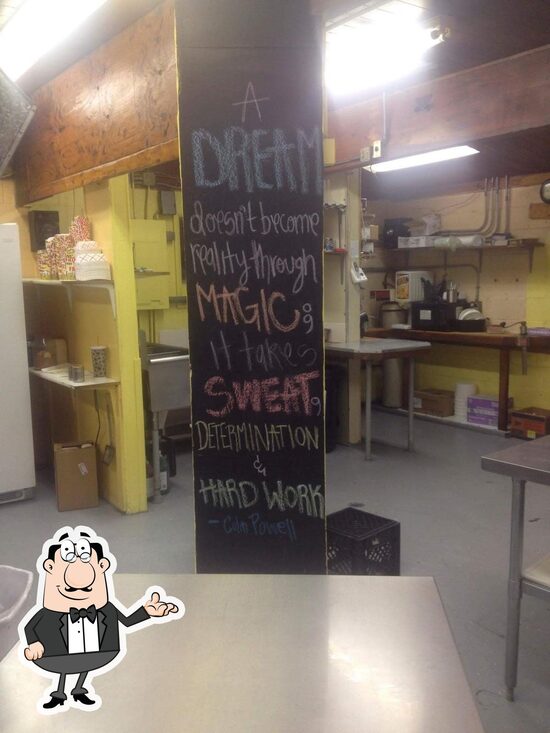 A
DREAM
doesn't become
reality through
MAGIC;
it takes
SWEAT,
DETERMINATION
&
HARD WORK
- Colin Powell